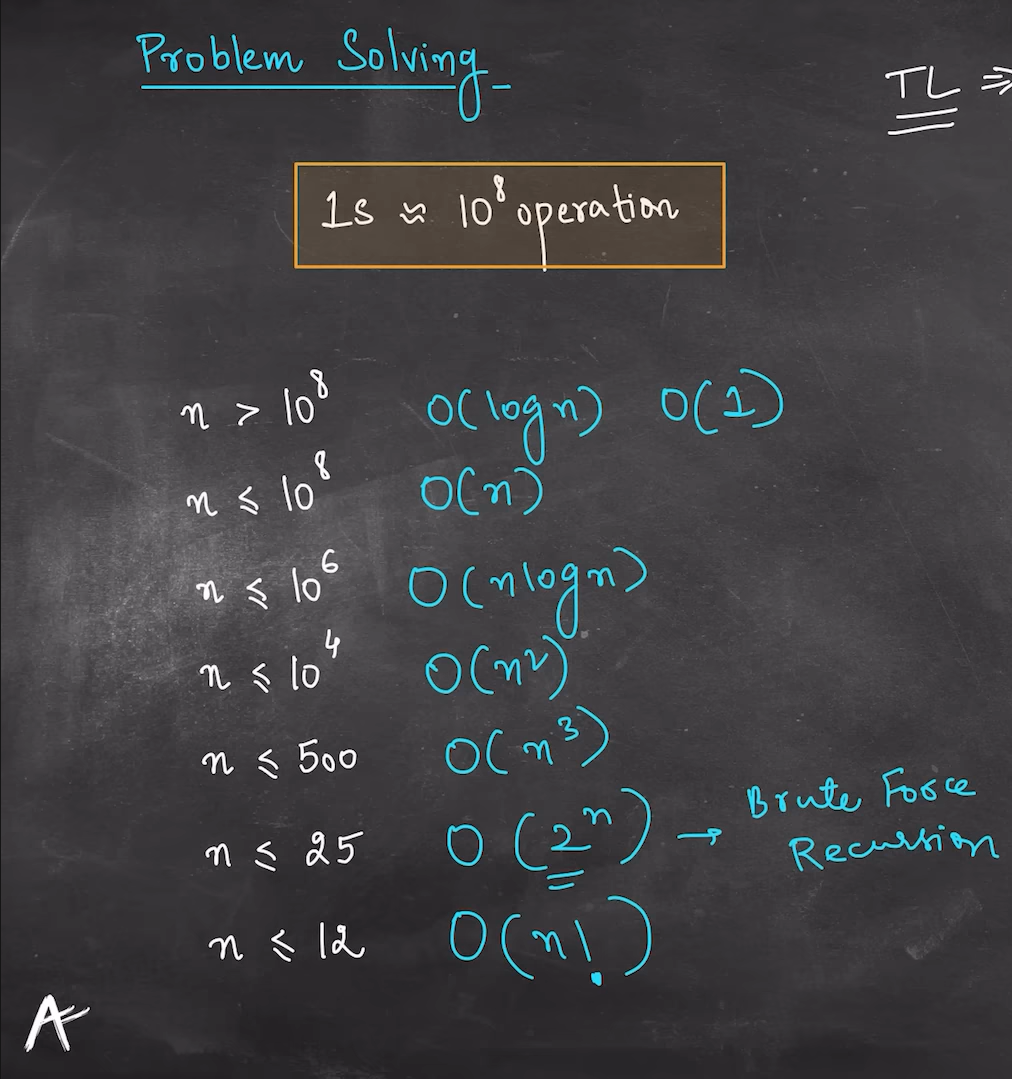 Problem Solving
TL ⇒
1s ≈ 10⁸ operation
n > 10⁸ O(logn) O(1)
n ≤ 10⁸ O(n)
n ≤ 10⁶ O(nlogn)
n ≤ 10⁴ O(n²)
n ≤ 500 O(n³)
n ≤ 25 O(2ⁿ) → Brute Force
Recursion
n ≤ 12 O(n!)
A